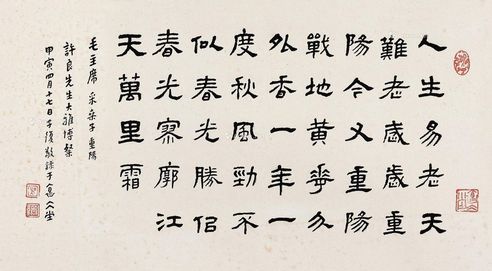 人生易老天
難老歲歲重
陽今又重陽
戰地黃華分
外香一年一
度秋風勁不
似春光勝佀
春光寥廓江
天萬里霜
毛主席 采桑子 重陽
許良先生大雅博粲
甲寅四月十七日子復敬錄于